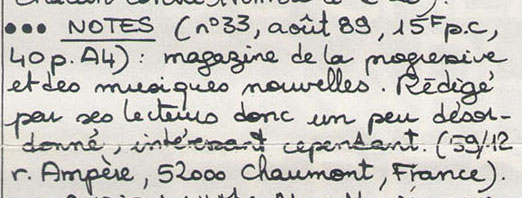 ●●● NOTES (n°33, août 89, 15F p.c,
40p. A4) : magazine de la progressive
et des musiques nouvelles. Rédigé
par ses lecteurs donc un peu désor-
donné, intéressant cependant. (59/12
r. Ampère, 52000 Chaumont, France).